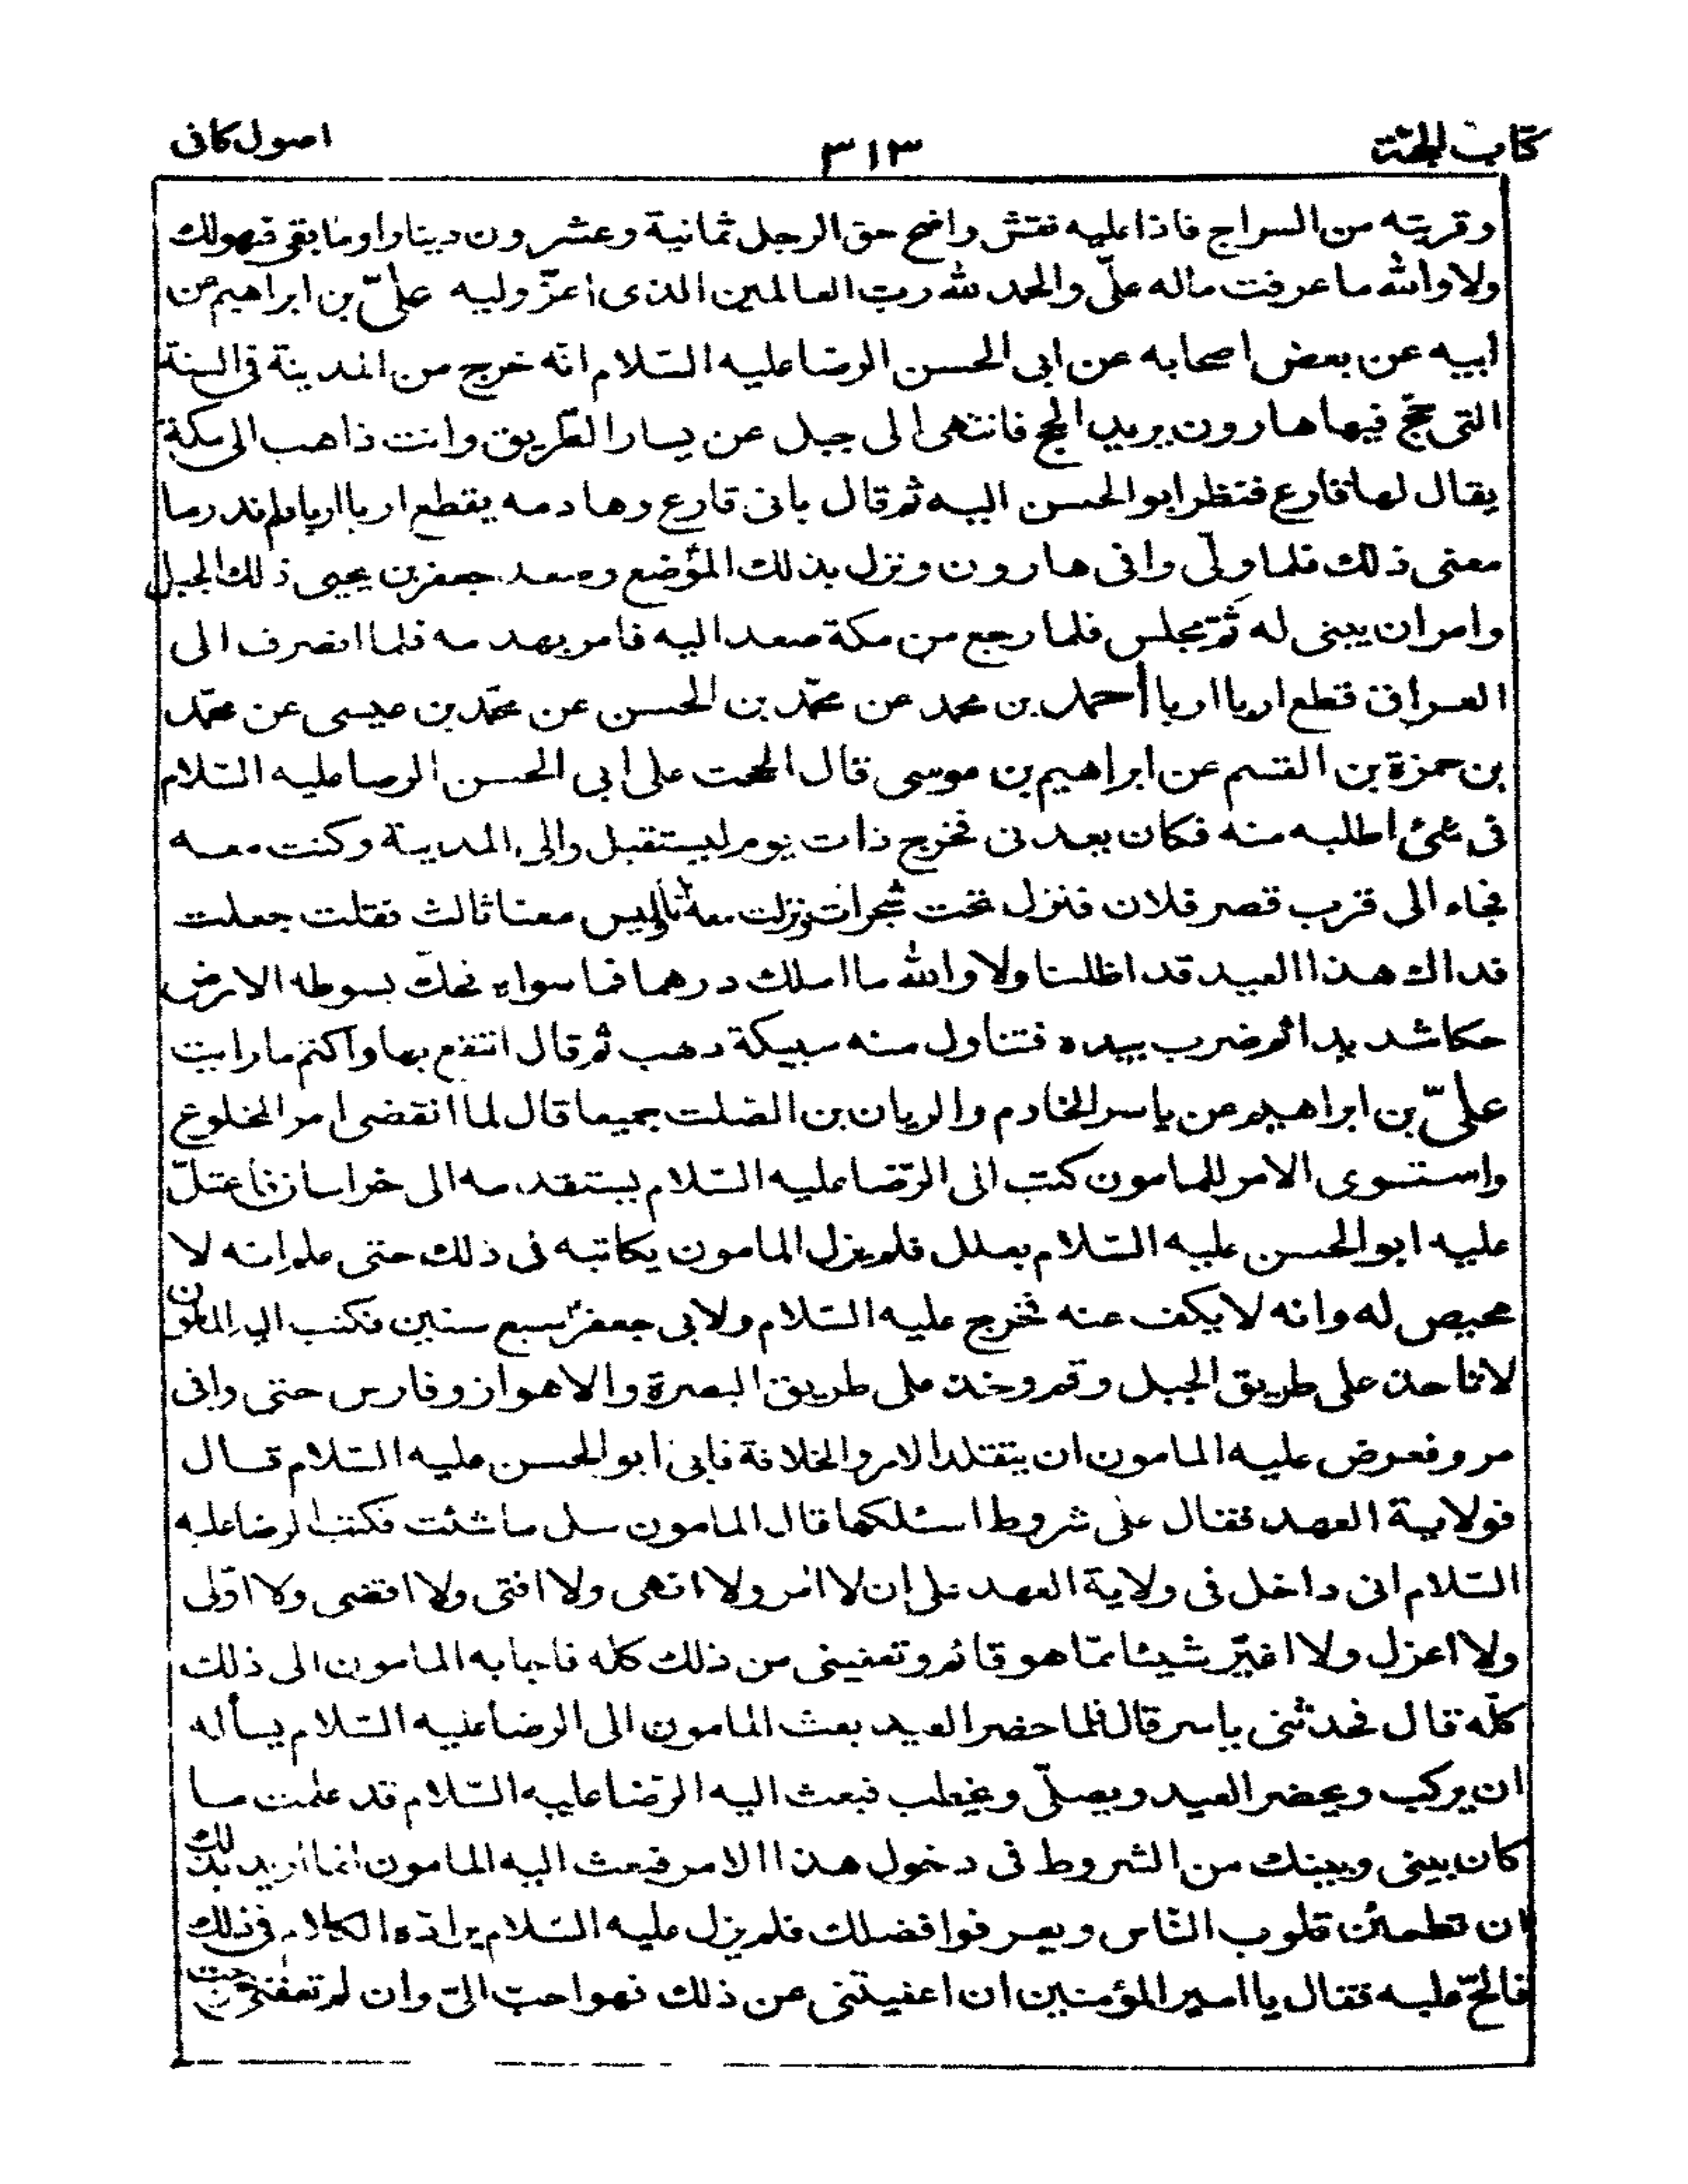 كتاب الحجّة
٣١٣
اصول كافى
وقربته من السراج فاذا عليه نقش واضح حق الرجل ثمانية وعشرون دينارا وما بقى فهو لك
ولا والله ما عرفت ماله علىّ والحمد لله رب العالمين الذى اعزّ وليه علىّ بن ابراهيم عن
ابيه عن بعض اصحابه عن ابى الحسن الرضا عليه السّلام انّه خرج من المدينة فى السنة
التى حجّ فيها هارون يريد الحج فانتهى الى جبل عن يسار الطّريق وانت ذاهب الى مكة
يقال لها قارع فنظر ابو الحسن اليه ثم قال بانى قارع وهادمه يقطع اربا اربا فلم ندر ما
معنى ذلك فلما ولّى وافى هارون ونزل بذلك الموضع وصعد جعفر بن يحيى ذلك الجبل
وامر ان يبنى له ثَمّ مجلس فلما رجع من مكة صعد اليه فامر بهدمه فلما انصرف الى
العراق قطع اربا اربا أحمد بن محمد عن محمّد بن الحسن عن محمّد بن عيسى عن محمّد
بن حمزة بن القسم عن ابراهيم بن موسى قال الححت على ابى الحسن الرضا عليه السّلام
فى شئ اطلبه منه فكان يعدنى فخرج ذات يوم ليستقبل والى المدينة وكنت معه
فجاء الى قرب قصر فلان فنزل تحت شجرات ونزلت معه أنا وليس معنا ثالث فقلت جعلت
فداك هذا العيد قد اظلنا ولا والله ما املك درهما فما سواه فحكّ بسوطه الارض
حكا شديدا ثم ضرب بيده فتناول منه سبيكة ذهب ثم قال انتفع بها واكتم ما رايت
علىّ بن ابراهيم عن ياسر الخادم والريان بن الصّلت جميعا قال لما انقضى امر المخلوع
واستوى الامر للمامون كتب الى الرّضا عليه السّلام يستقدمه الى خراسان فاعتلّ
عليه ابو الحسن عليه السّلام بعلل فلم يزل المامون يكاتبه فى ذلك حتى علم انه لا
محيص له وانه لا يكف عنه فخرج عليه السّلام ولابى جعفر سبع سنين فكتب اليه المامون
لا تاخذ على طريق الجبل وقم وخذ على طريق البصرة والاهواز وفارس حتى وافى
مرو فعرض عليه المامون ان يتقلد الامر والخلافة فابى ابو الحسن عليه السّلام قال
فولاية العهد فقال على شروط اسئلكها قال المامون سل ما شئت فكتب الرضا عليه
السّلام انى داخل فى ولاية العهد على ان لا امر ولا انهى ولا افتى ولا اقضى ولا اولّى
ولا اعزل ولا اغيّر شيئا ممّا هو قائم وتعفينى من ذلك كله فاجابه المامون الى ذلك
كلّه قال فحدثنى ياسر قال فلما حضر العيد بعث المامون الى الرضا عليه السّلام يسأله
ان يركب ويحضر العيد ويصلّى ويخطب فبعث اليه الرّضا عليه السّلام قد علمت ما
كان بينى وبينك من الشروط فى دخول هذا الامر فبعث اليه المامون انما اريد بذلك
ان تطمائن قلوب النّاس ويعرفوا فضلك فلم يزل عليه السّلام يرادّه الكلام فى ذلك
فالحّ عليه فقال يا امير المؤمنين ان اعفيتنى عن ذلك فهو احبّ الىّ وان لم تعفنى خرجت